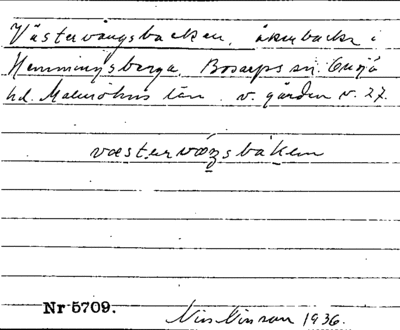 Västervångsbacken, åkerbacke i
Hemmingsberga, Bosarps sn. Onsjö
hd. Malmöhus län. v. gården v. 27.
væstervǫŋsbakem
Nr 5709.
Nils Nilsson 1936.